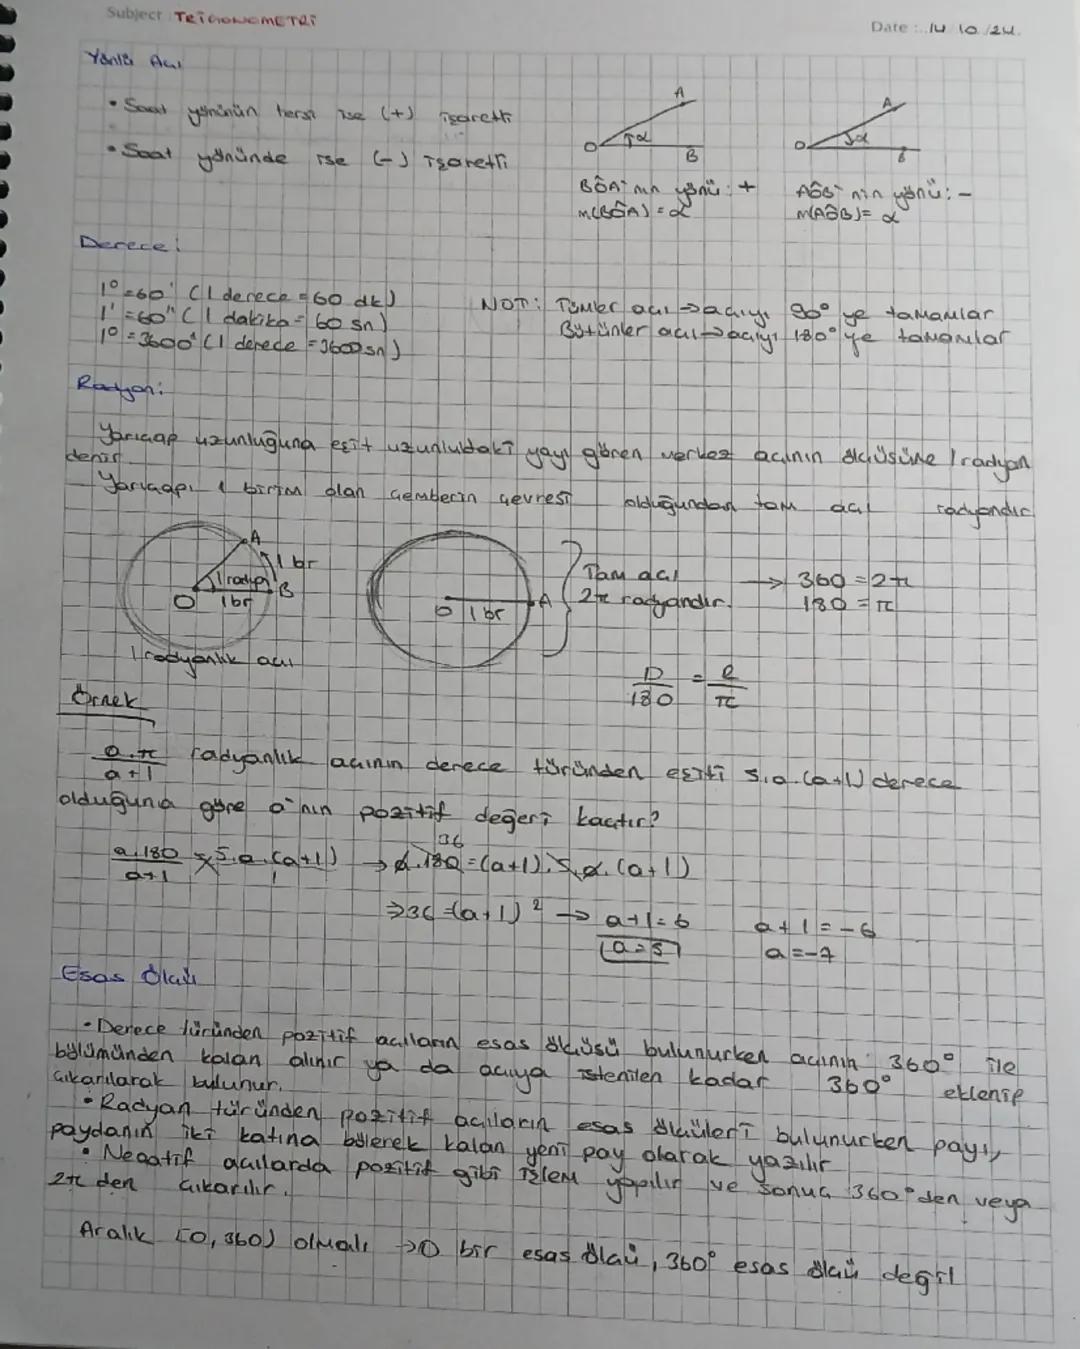 Subject: TRİGONOMETRİ
Date: 14.10./24.
Yönlü Açı
• Saat yönünün tersi ise (+) işaretli
• Saat yönünde ise (-) işaretli
A
O α B
A
O α B
BÔA'nın yönü: +
m(BÔA) = α
AÔB'nin yönü: -
m(AÔB) = α
Derece:
1° = 60' (1 derece = 60 dk)
1' = 60" (1 dakika = 60 sn)
1° = 3600" (1 derece = 3600 sn)
NOT: Tümler açı → açıyı 90° ye tamamlar
Bütünler açı → açıyı 180° ye tamamlar
Radyan:
Yarıçap uzunluğuna eşit uzunluktaki yayı gören merkez açının ölçüsüne 1 radyan
denir.
Yarıçapı 1 birim olan çemberin çevresi olduğundan tam açı radyandır.
A
1 br
1 radyan
O 1br B
1 radyanlık açı
O 1 br A
Tam açı
2π radyandır.
→ 360 = 2π
180 = π
D/180 = R/π
Örnek
a.π/a+1 radyanlık açının derece türünden eşiti 5.a.(a+1) derece
olduğuna göre a'nın pozitif değeri kaçtır?
a.180/a+1 = 5.a.(a+1)/1 → a.180 = (a+1).5.a.(a+1)
36
⇒ 36 = (a+1)² → a+1 = 6
a = 5
a+1 = -6
a = -7
Esas Ölçü
• Derece türünden pozitif açıların esas ölçüsü bulunurken açının 360° ile
bölümünden kalan alınır ya da açıya istenilen kadar 360° eklenip
çıkarılarak bulunur.
• Radyan türünden pozitif açıların esas ölçüleri bulunurken payı,
paydanın iki katına bölerek kalan yeni pay olarak yazılır
• Negatif açılarda pozitif gibi işlem yapılır ve sonuç 360°den veya
2π den çıkarılır.
Aralık [0, 360) olmalı → 0 bir esas ölçü, 360° esas ölçü değil